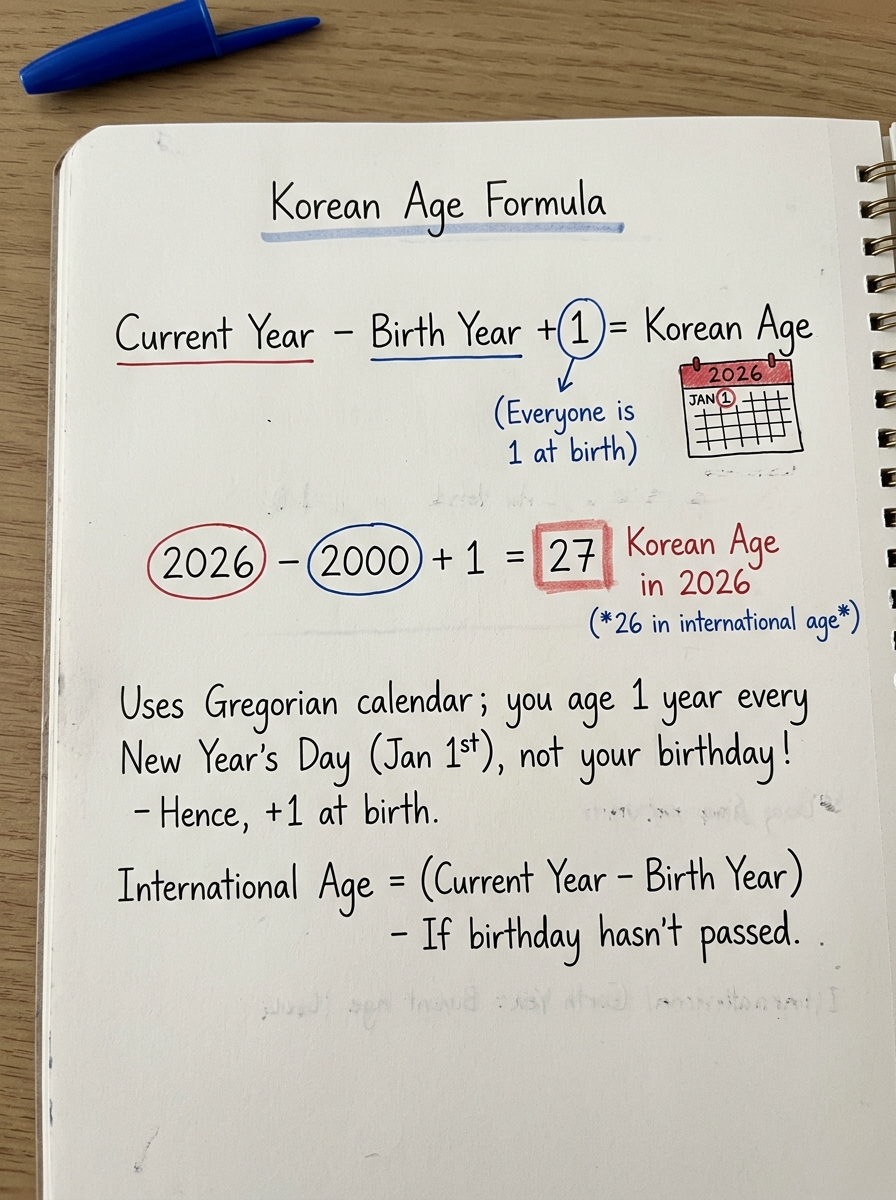 Korean Age Formula
Current Year - Birth Year + 1 = Korean Age
(Everyone is
1 at birth)
2026
JAN 1
2026 - 2000 + 1 = 27
Korean Age
in 2026
(*26 in international age*)
Uses Gregorian calendar; you age 1 year every
New Year's Day (Jan 1st), not your birthday!
- Hence, +1 at birth.
International Age = (Current Year - Birth Year)
- If birthday hasn't passed.